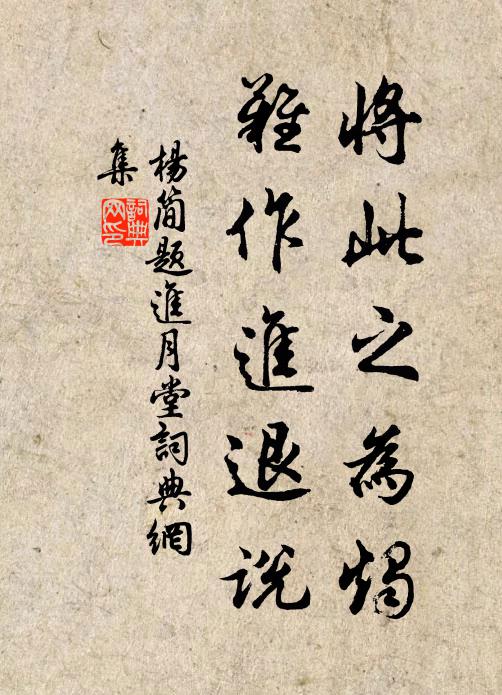 將此之為燭
難作進退說
楊簡題進月堂詞典網
集
詞典網印